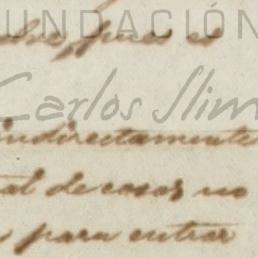 FUNDACIÓN
pues el
Carlos Slim
indirectamente
tal de cosas no
para entrar